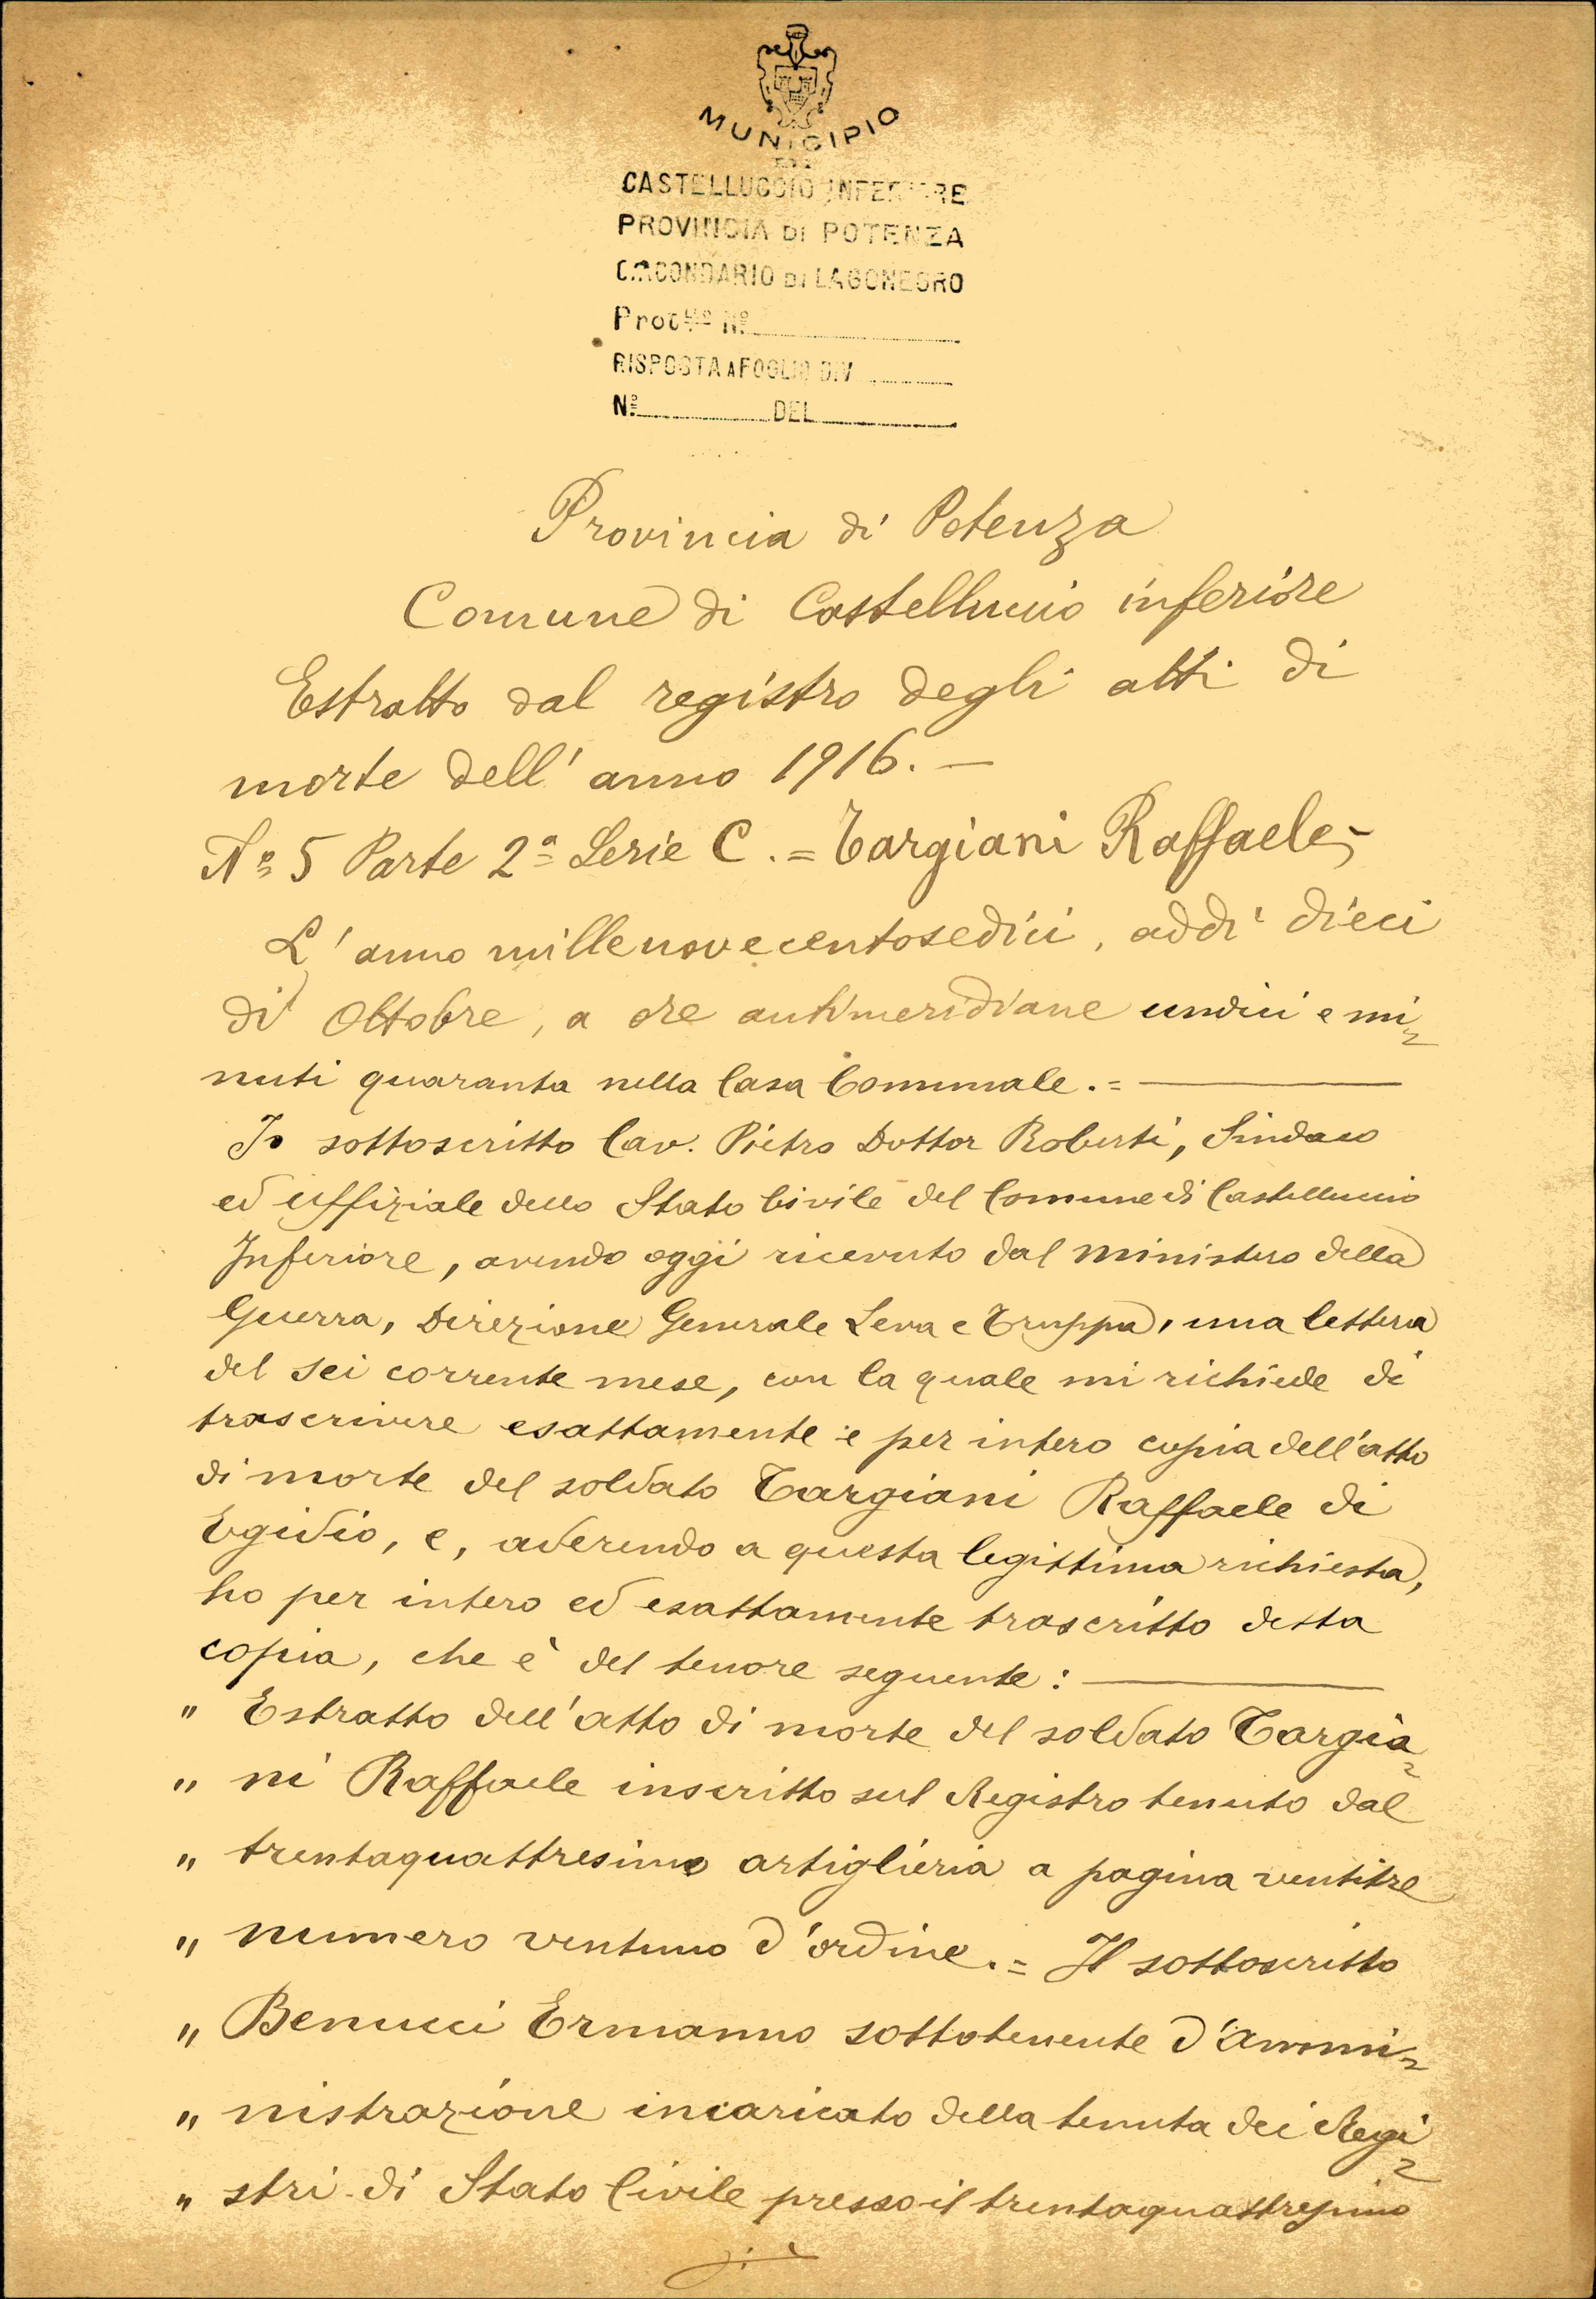 MUNICIPIO
DI
CASTELLUCCIO INFERIORE
PROVINCIA DI POTENZA
CIRCONDARIO DI LAGONEGRO
Prot. Nº
RISPOSTA A FOGLIO DIV
Nº DEL
Provincia di Potenza
Comune di Castelluccio inferiore
Estratto dal registro degli atti di
morte dell'anno 1916. —
Nº 5 Parte 2ª Serie C. = Targiani Raffaele –
L'anno millenovecentosedici, addì dieci
di Ottobre, a ore antimeridiane undici e mi=
nuti quaranta nella Casa Comunale. =
Io sottoscritto Cav. Pietro Dottor Roberti, Sindaco
ed uffiziale dello Stato Civile del Comune di Castelluccio
Inferiore, avendo oggi ricevuto dal ministero della
Guerra, Direzione Generale Leva e Truppa, una lettera
del sei corrente mese, con la quale mi richiede di
trascrivere esattamente e per intero copia dell'atto
di morte del soldato Targiani Raffaele di
Egidio, e, aderendo a questa legittima richiesta,
ho per intero ed esattamente trascritto detta
copia, che è del tenore seguente:
" Estratto dell'atto di morte del soldato Targia=
" ni Raffaele inscritto sul Registro tenuto dal
" trentaquattresimo artiglieria a pagina ventitre
" numero ventuno d'ordine. = Il sottoscritto
" Benucci Ermanno sottotenente d'ammi=
" nistrazione incaricato della tenuta dei Regi=
" stri di Stato Civile presso il trentaquattresimo